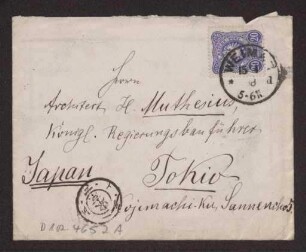 WEIMAR
5-6N
Herrn
Architect H. Muthesius,
Königl. Regierungsbauführer
Japan
Tokio
Kojimachi-Ku, Sannencho 3
D 102-4652 A